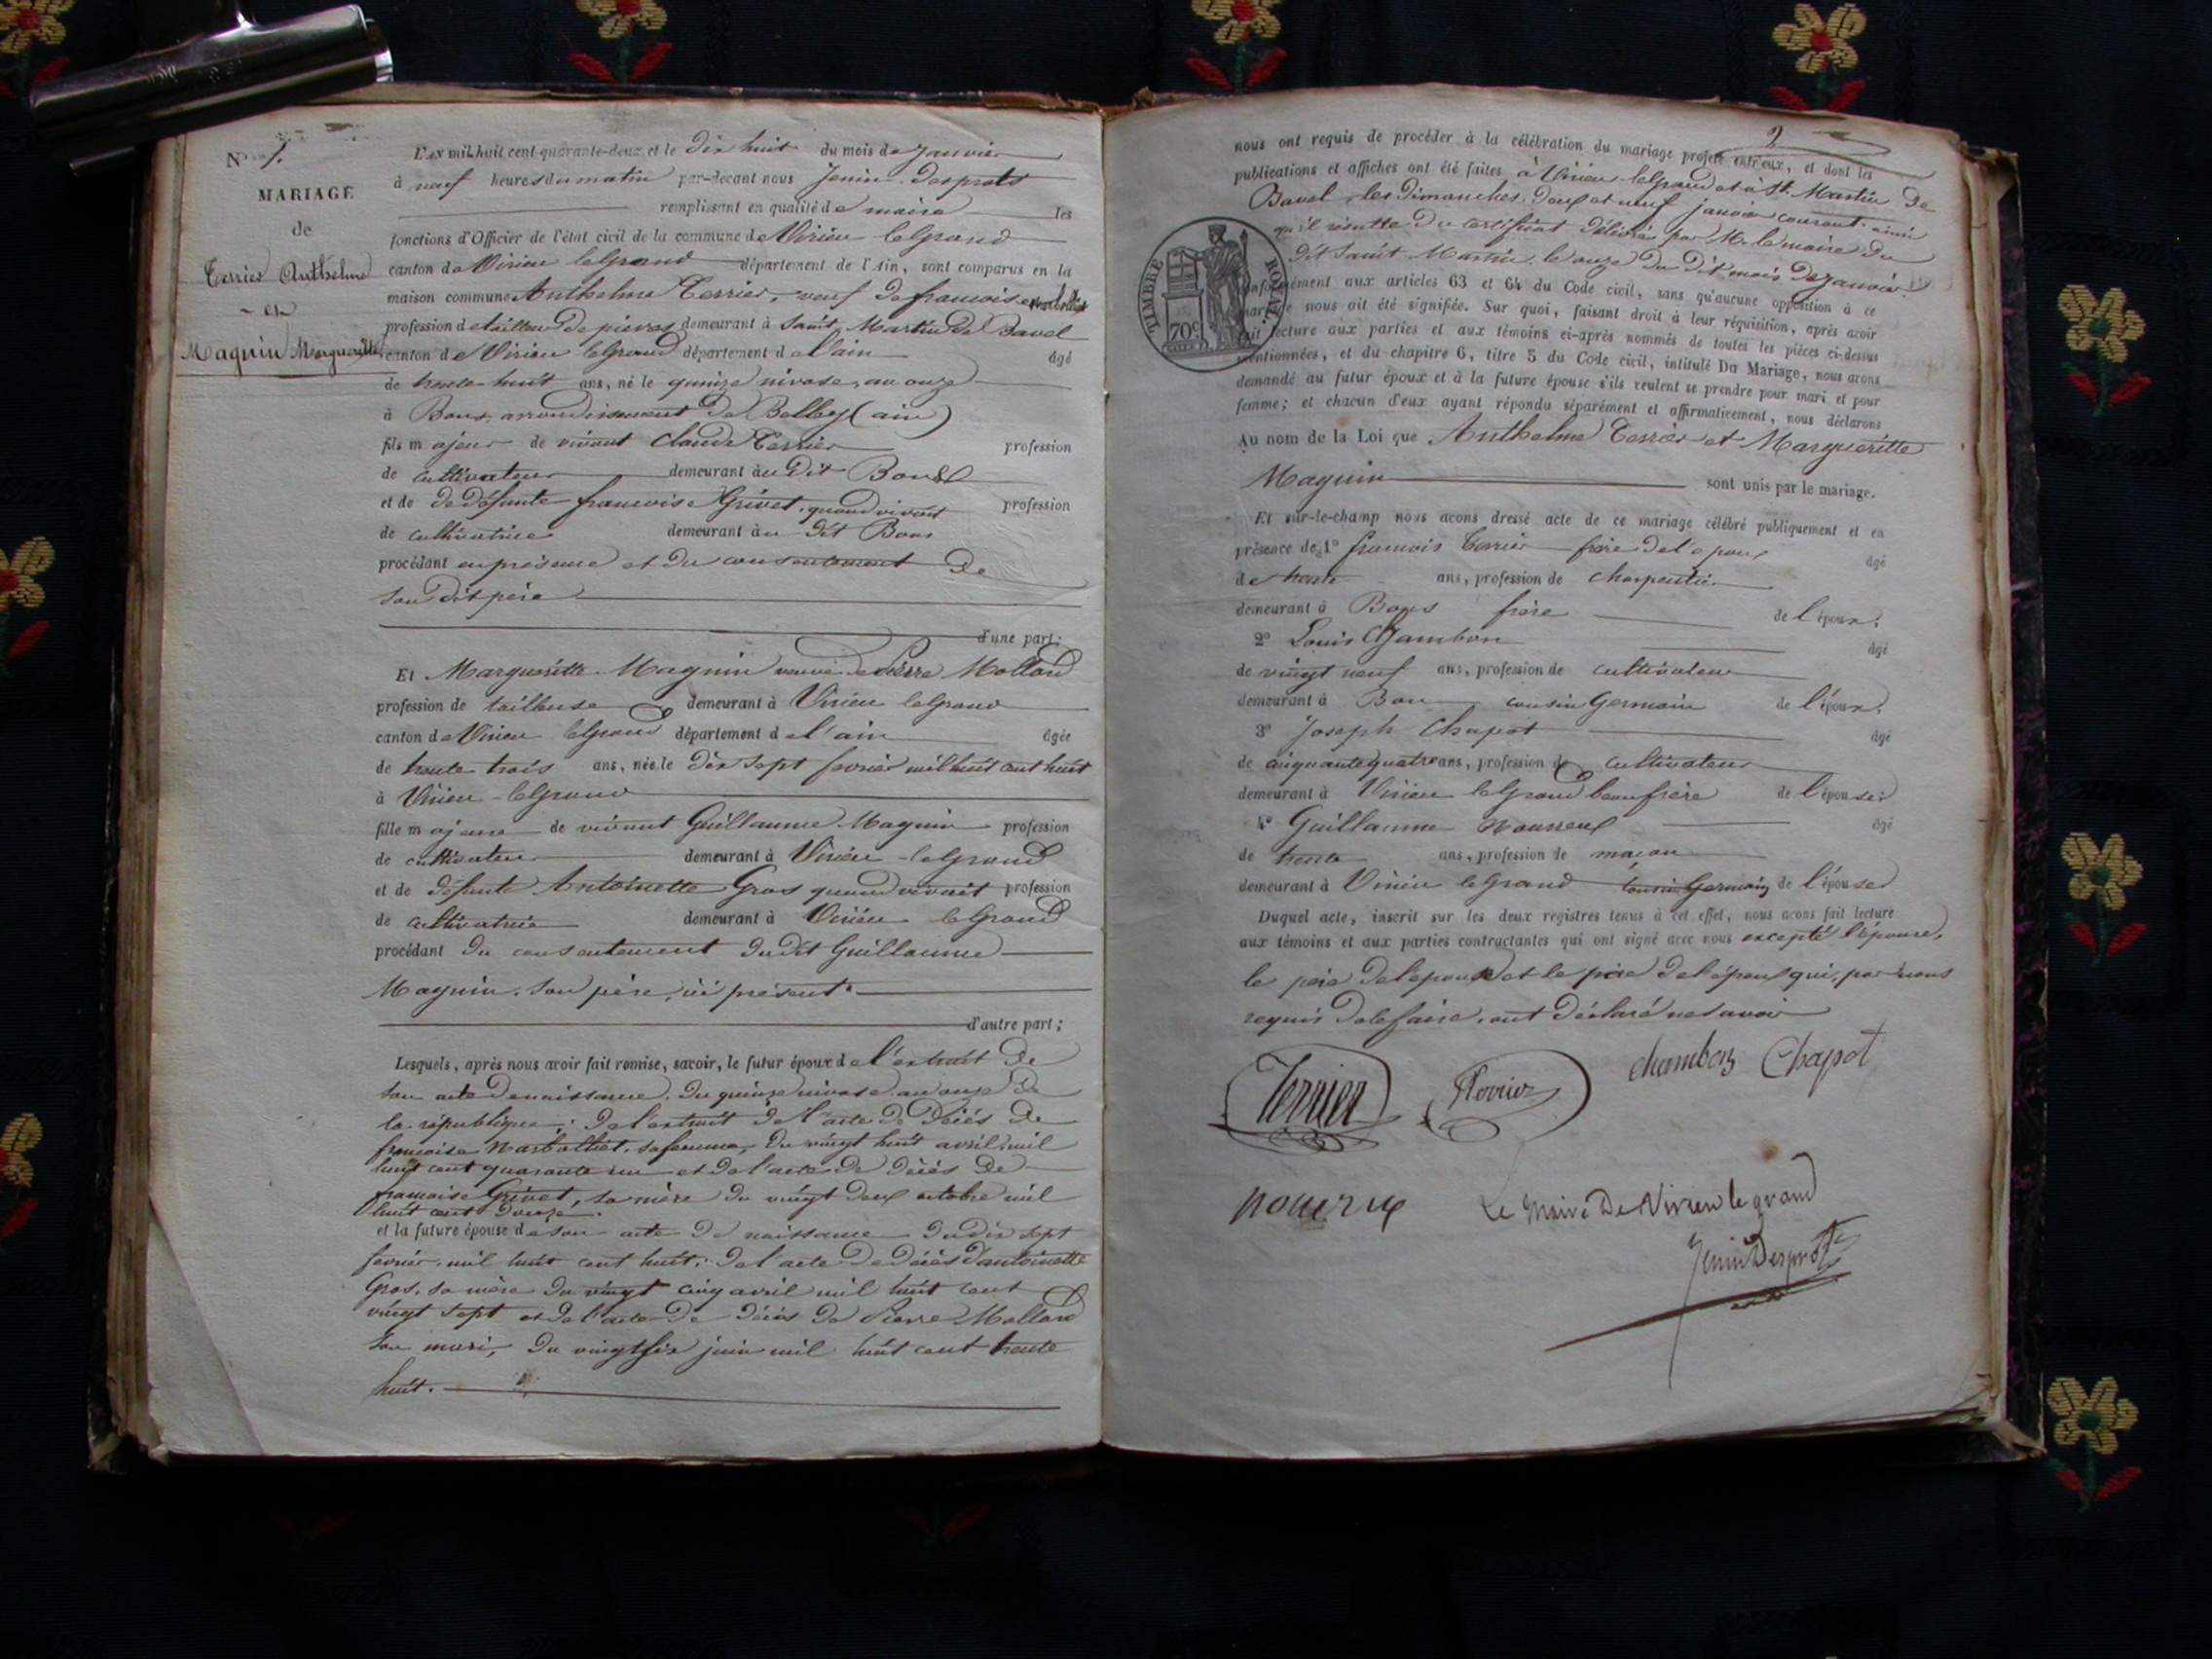 N° 1.
MARIAGE
de
Terrier Anthelme
et
Maguin Margueritte
L'an mil huit cent quarante-deux et le dix huit du mois de janvier
à neuf heures du matin par-devant nous Jenin Desprots
remplissant en qualité de maire les
fonctions d'Officier de l'état civil de la commune de Virieu le Grand
canton de Virieu le Grand département de l'Ain, sont comparus en la
maison commune Anthelme Terrier, veuf de francoise
profession de tailleur de pierres demeurant à Saint Martin de Bavel
canton de Virieu le Grand département de l'ain âgé
de trente huit ans, né le quinze nivose, an onze
à Bons, arrondissement de Belley (ain)
fils majeur de vivant Claude Terrier profession
de cultivateur demeurant au dit Bons
et de de défunte francoise Grivet, quand vivait profession
de cultivatrice demeurant au dit Bons
procédant en présence et du consentement de
son dit père
d'une part;
Et Margueritte Maguin veuve de Pierre Mollard
profession de tailleuse demeurant à Virieu le Grand
canton de Virieu le Grand département de l'ain âgée
de trente trois ans, née le dix sept fevrier mil huit cent huit
à Virieu-le Grand
fille majeure de vivant Guillaume Maguin profession
de cultivateur demeurant à Virieu-le Grand
et de défunte Antoinette Gros quand vivait profession
de cultivatrice demeurant à Virieu le Grand
procédant du consentement dudit Guillaume
Maguin, son père, ici présent
d'autre part;
Lesquels, après nous avoir fait remise, savoir, le futur époux de l'extrait de
son acte de naissance, du quinze nivose an onze de
la république; de l'extrait de l'acte de décès de
francoise Narbolliet, sa femme, du vingt huit avril mil
huit cent quarante un et de l'acte de décès de
francoise Grivet, sa mère du vingt deux octobre mil
huit cent douze.
et la future épouse de son acte de naissance du dix sept
fevrier mil huit cent huit; de l'acte de décès d'antoinette
Gros, sa mère du vingt cinq avril mil huit cent
vingt sept et de l'acte de décès de Pierre Mollard
son mari, du vingt six juin mil huit cent trente
huit.
2
nous ont requis de procéder à la célébration du mariage projeté entr'eux, et dont les
publications et affiches ont été faites à Virieu le Grand et à St. Martin de
Bavel, les dimanches deux et neuf janvier courant ainsi
qu'il résulte du certificat délivré par M. le maire du
dit Saint Martin le onze du dit mois de janvier.
TIMBRE ROYAL
70c
conformément aux articles 63 et 64 du Code civil, sans qu'aucune opposition à ce
mariage nous ait été signifiée. Sur quoi, faisant droit à leur réquisition, après avoir
fait lecture aux parties et aux témoins ci-après nommés de toutes les pièces ci-dessus
mentionnées, et du chapitre 6, titre 5 du Code civil, intitulé Du Mariage, nous avons
demandé au futur époux et à la future épouse s'ils veulent se prendre pour mari et pour
femme; et chacun d'eux ayant répondu séparément et affirmativement, nous déclarons
Au nom de la Loi que Anthelme Terrier et Margueritte
Maguin sont unis par le mariage.
Et sur-le-champ nous avons dressé acte de ce mariage célébré publiquement et en
présence de 1° francois Terrier frère de l'époux âgé
de trente ans, profession de charpentier
demeurant à Bons frère de l'époux.
2° Louis Chambon âgé
de vingt neuf ans, profession de cultivateur
demeurant à Bon cousin Germain de l'époux.
3° Joseph Chapot âgé
de cinquante quatre ans, profession de cultivateur
demeurant à Virieu le Grand beaufrère de l'épouse
4° Guillaume âgé
de trente ans, profession de macon
demeurant à Virieu le Grand Cousin Germain de l'épouse
Duquel acte, inscrit sur les deux registres tenus à cet effet, nous avons fait lecture
aux témoins et aux parties contractantes qui ont signé avec nous excepté l'épouse,
le père de l'épouse et le père de l'époux qui, par nous
requis de le faire, ont déclaré ne savoir
Terrier Chapot
Le Maire De Virieu le grand
Jenin Desprots